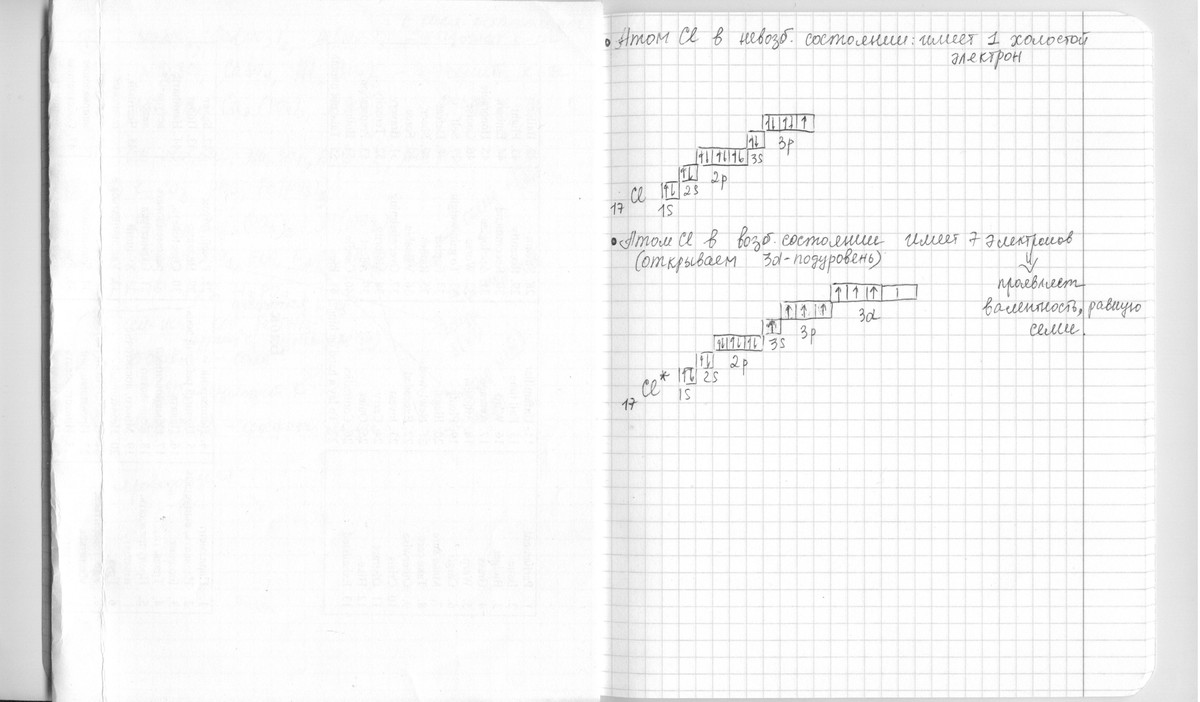 • Атом Cl в невозб. состоянии: имеет 1 холостой
электрон
3p
3s
2p
2s
1s
17 Cl
• Атом Cl в возб. состоянии имеет 7 электронов
(открываем 3d-подуровень)
проявляет
валентность, равную
семи.
3d
3p
3s
2p
2s
1s
17 Cl*